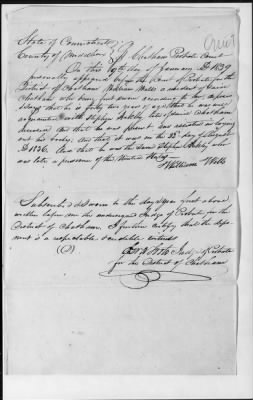 State of Connecticut
County of Middlesex } Chatham Probate Court
On this 19th day of January AD 1839
personally appeared before the Court of Probate for the
District of Chatham William Wells a resident of
Chatham who being first sworn according to law
says that he is forty two years of age that he was
acquainted with Stephen late of said Chatham
deceased And that he was present and assisted in laying
out his body. And that it was on the 22d day of August
AD 1836. And that he was the same Stephen who
was late a pensioner of the United States
William Wells
Subscribed & sworn to the day & year first above
written before me the undersigned Judge of Probate for the
District of Chatham. I further certify that the depo
nent is a respectable & credible witness
Judge of Probate
for the District of Chatham